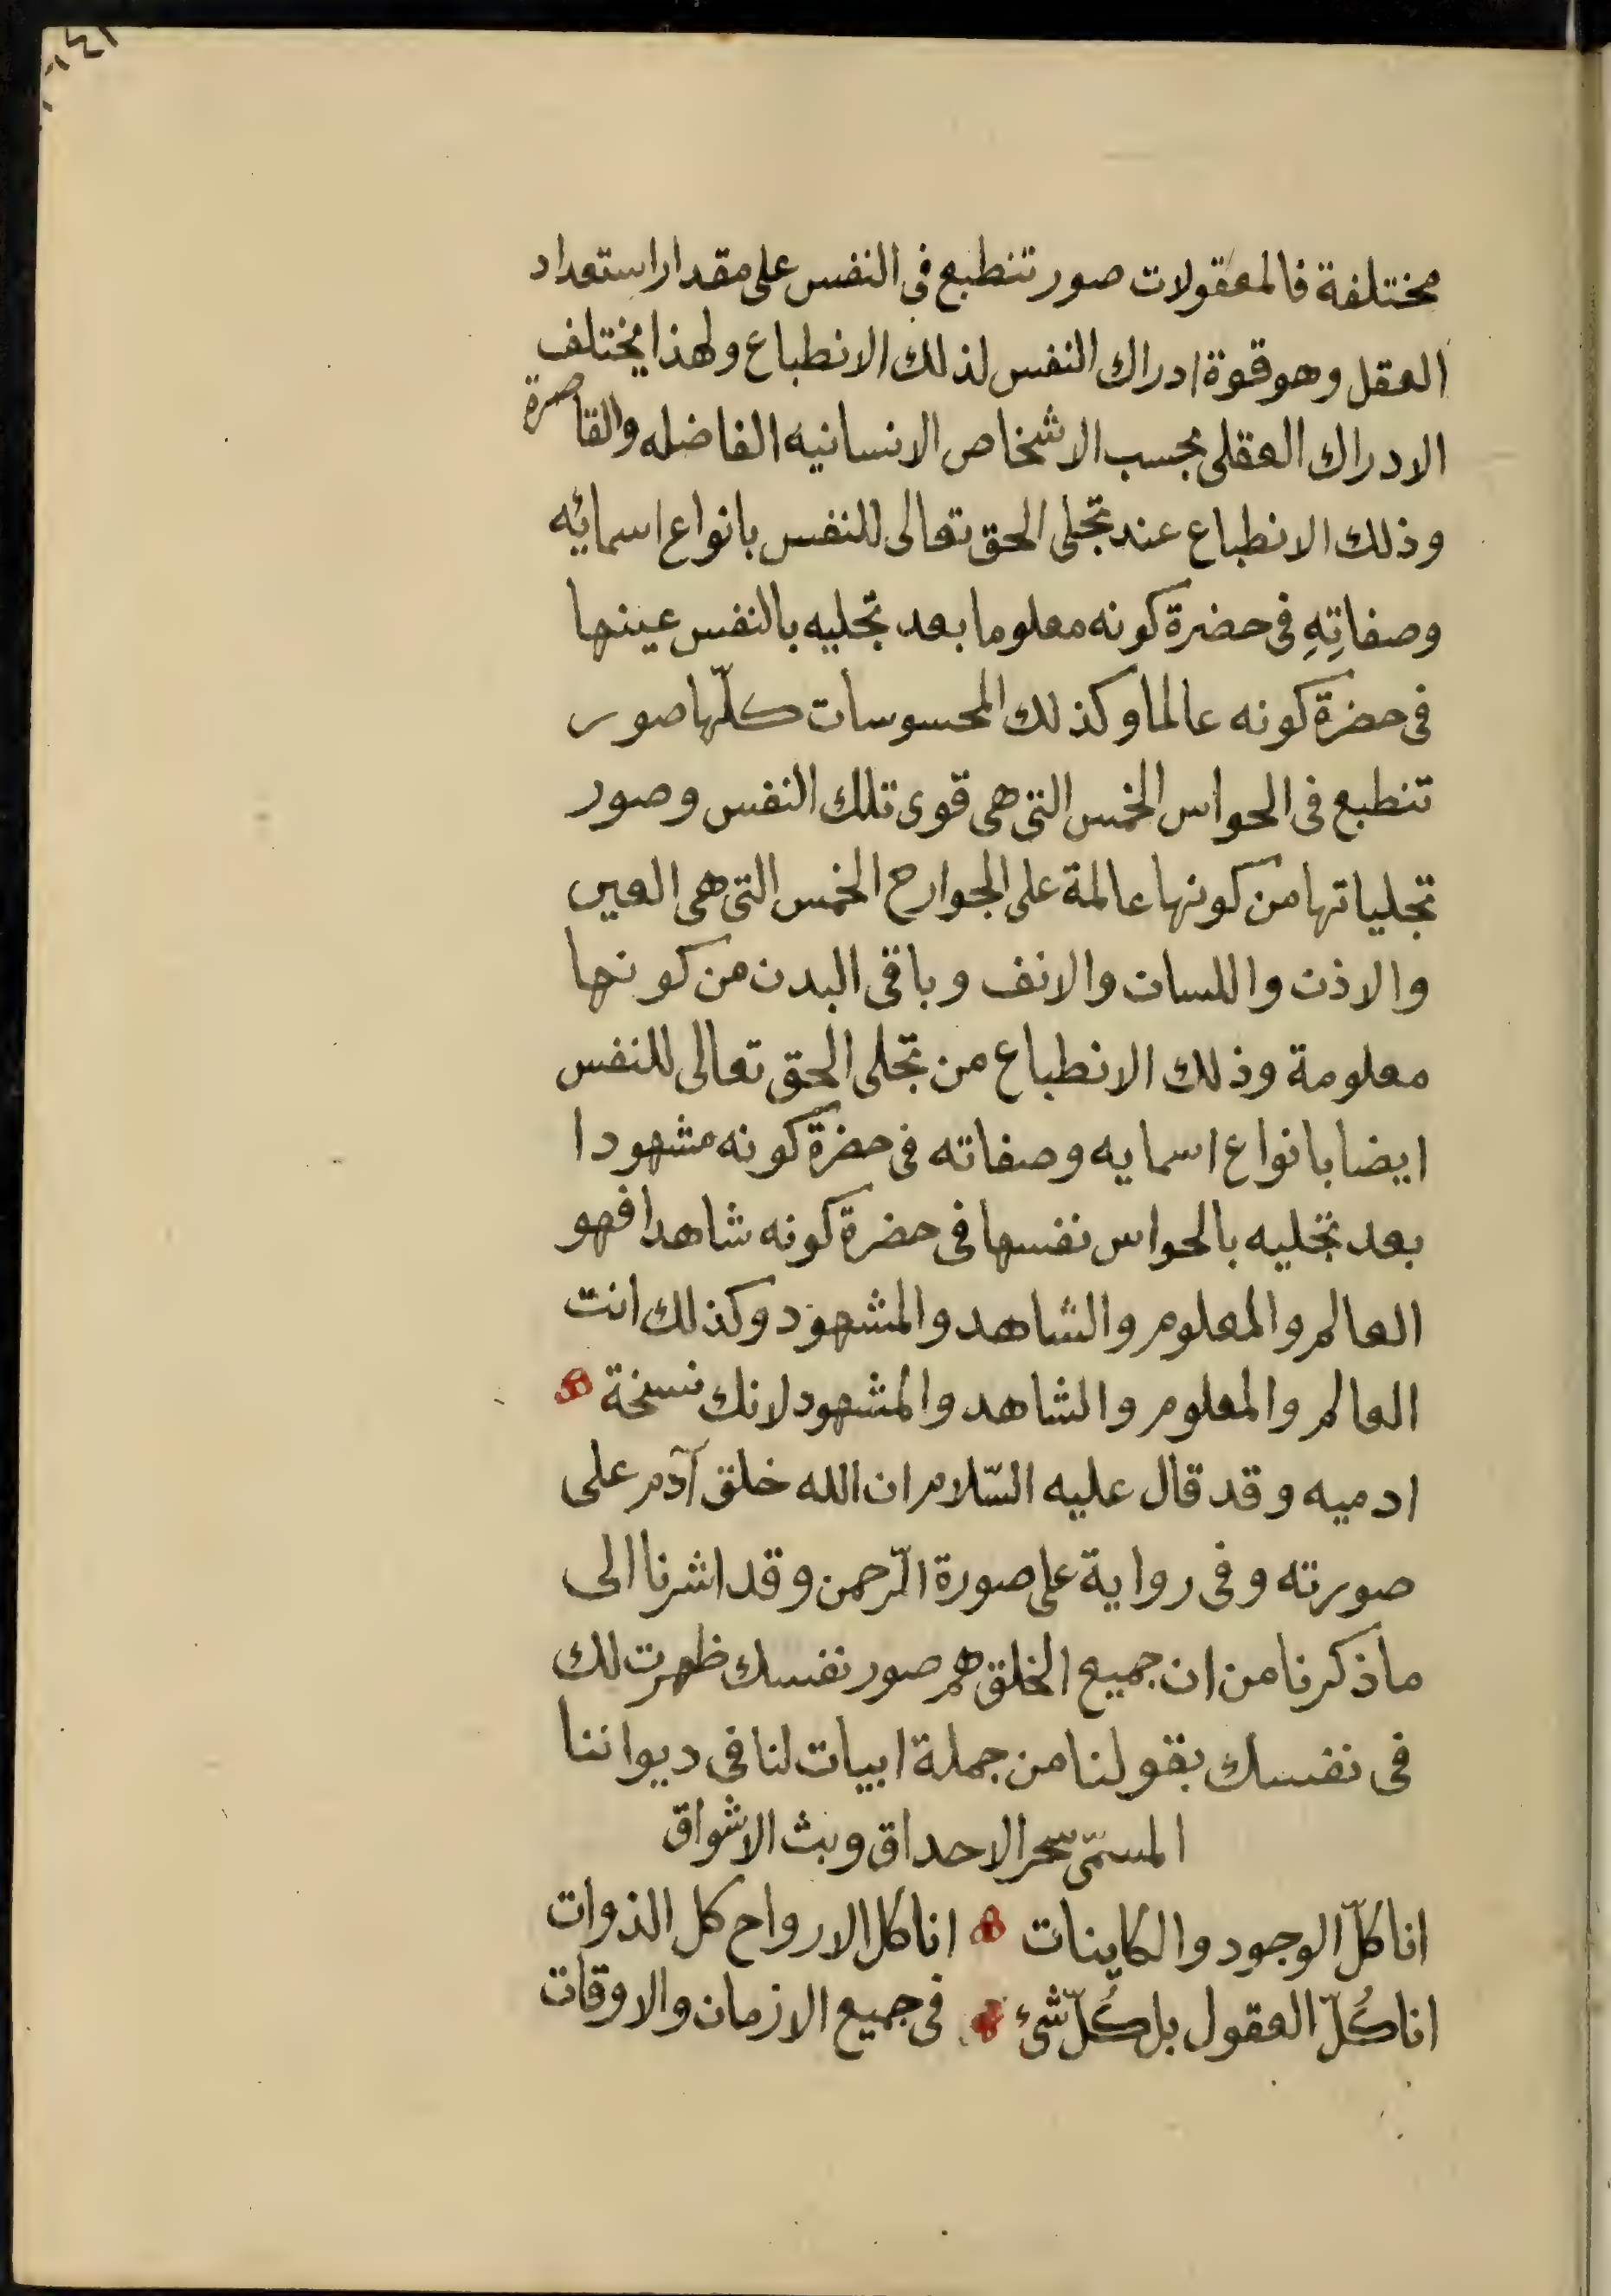 مختلفة فالمعقولات صور تنطبع فى النفس على مقدار استعداد
العقل وهو قوة ادراك النفس لذلك الانطباع ولهذا يختلف
الادراك العقلى بحسب الاشخاص الانسانيه الفاضله والقاصرة
وذلك الانطباع عند تجلى الحق تعالى للنفس بانواع اسمائه
وصفاتِهِ فى حضرة كونه معلوما بعد تجليه بالنفس عينها
فى حضرة كونه عالما وكذلك المحسوسات كلّها صور
تنطبع فى الحواس الخمس التى هى قوى تلك النفس وصور
تجلياتها من كونها عالمة على الجوارح الخمس التى هى العين
والاذن واللسان والانف وباقى البدن من كونها
معلومة وذلك الانطباع من تجلى الحق تعالى للنفس
ايضا بانواع اسمايه وصفاته فى حضرة كونه مشهودا
بعد تجليه بالحواس نفسها فى حضرة كونه شاهدا فهو
العالم والمعلوم والشاهد والمشهود وكذلك انت
العالم والمعلوم والشاهد والمشهود لانك نسخة
ادميه وقد قال عليه السّلام ان الله خلق آدم على
صورته وفى رواية على صورة الرّحمن وقد اشرنا الى
ما ذكرنا من ان جميع الخلق هم صور نفسك ظهرت لك
فى نفسك بقولنا من جملة ابيات لنا فى ديواننا
المسمّى سحر الاحداق وبث الاشواق
انا كلّ الوجود والكاينات انا كل الارواح كل الذوات
انا كُلّ العقول بل كُلّ شئ فى جميع الازمان والاوقات